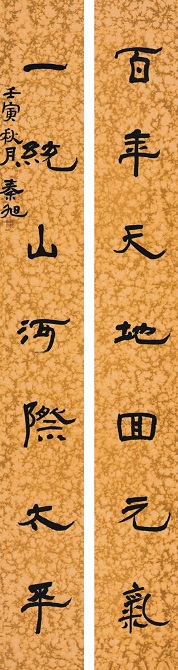 百年天地回元氣
一統山河際太平
壬寅秋月秦旭